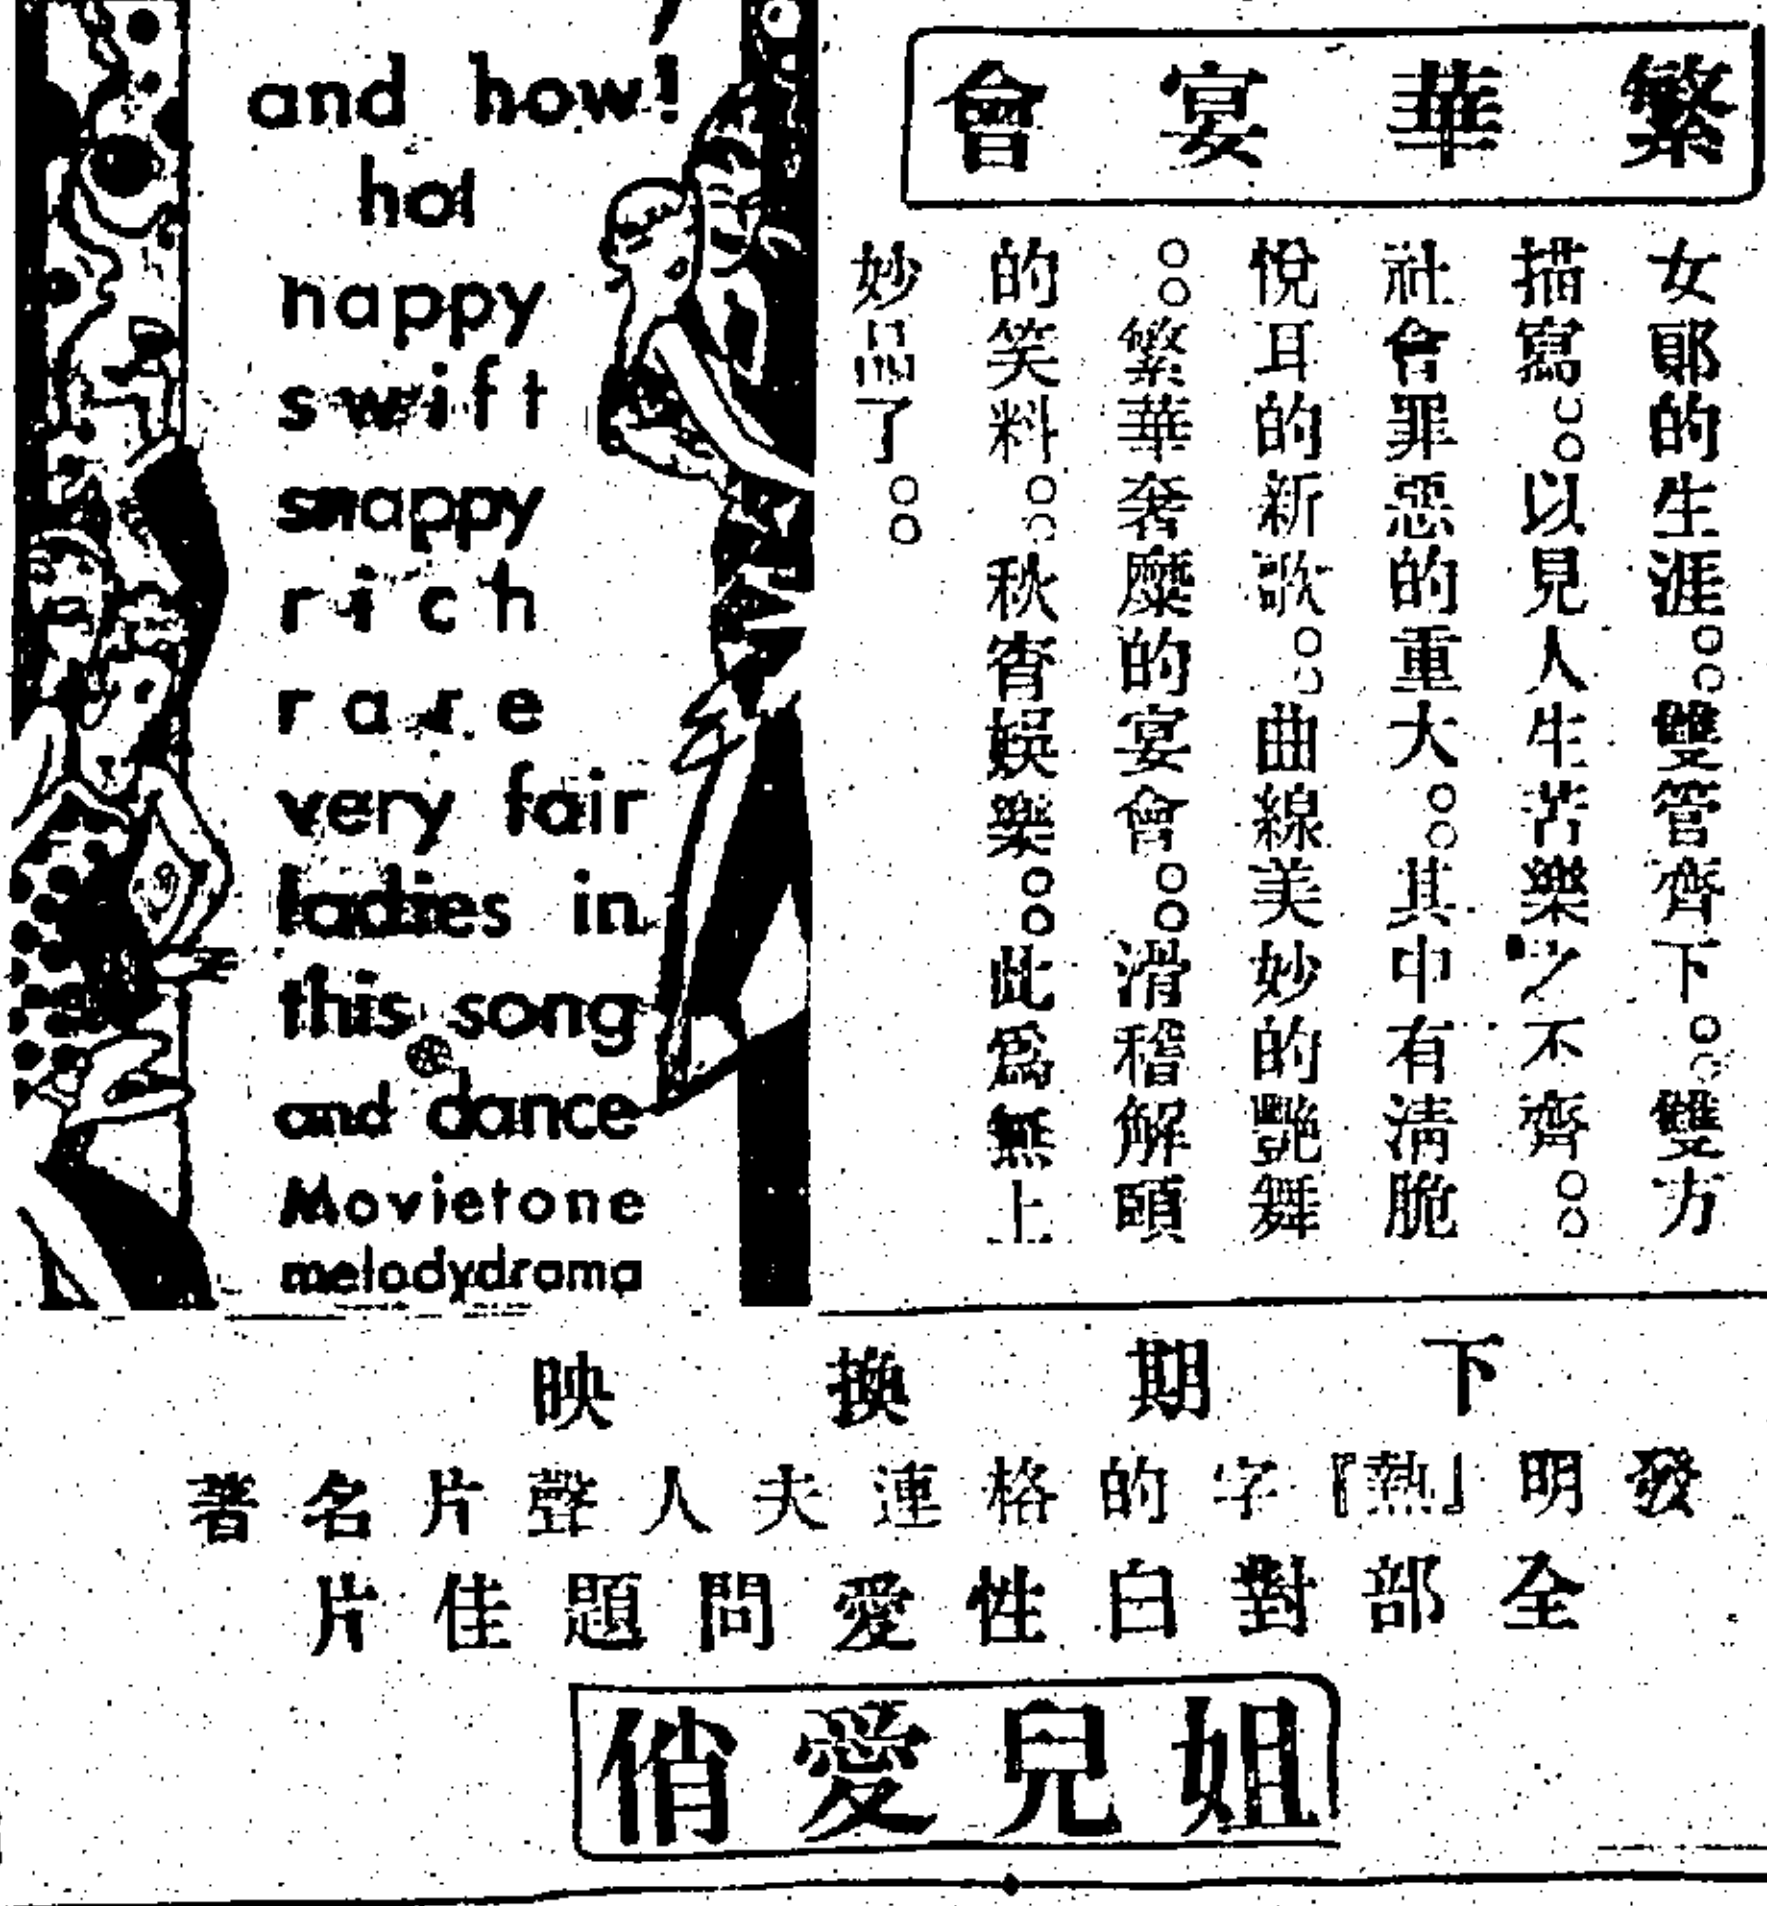 and how!
hot
happy
swift
snappy
rich
rare
very fair
ladies in
this song
and dance
Movietone
melodydrama
繁華宴會
女郎的生涯。。雙管齊下。。雙方
描寫。。以見人生苦樂之不齊。。
社會罪惡的重大。。其中有清脆
悅耳的新歌。。曲線美妙的艷舞
。。繁華奢糜的宴會。。滑稽解頤
的笑料。。秋宵娛樂。。此爲無上
妙品了。。
下期換映
發明『熱』字的格連夫人聲片名著
全部對白性愛問題佳片
姐兒愛俏